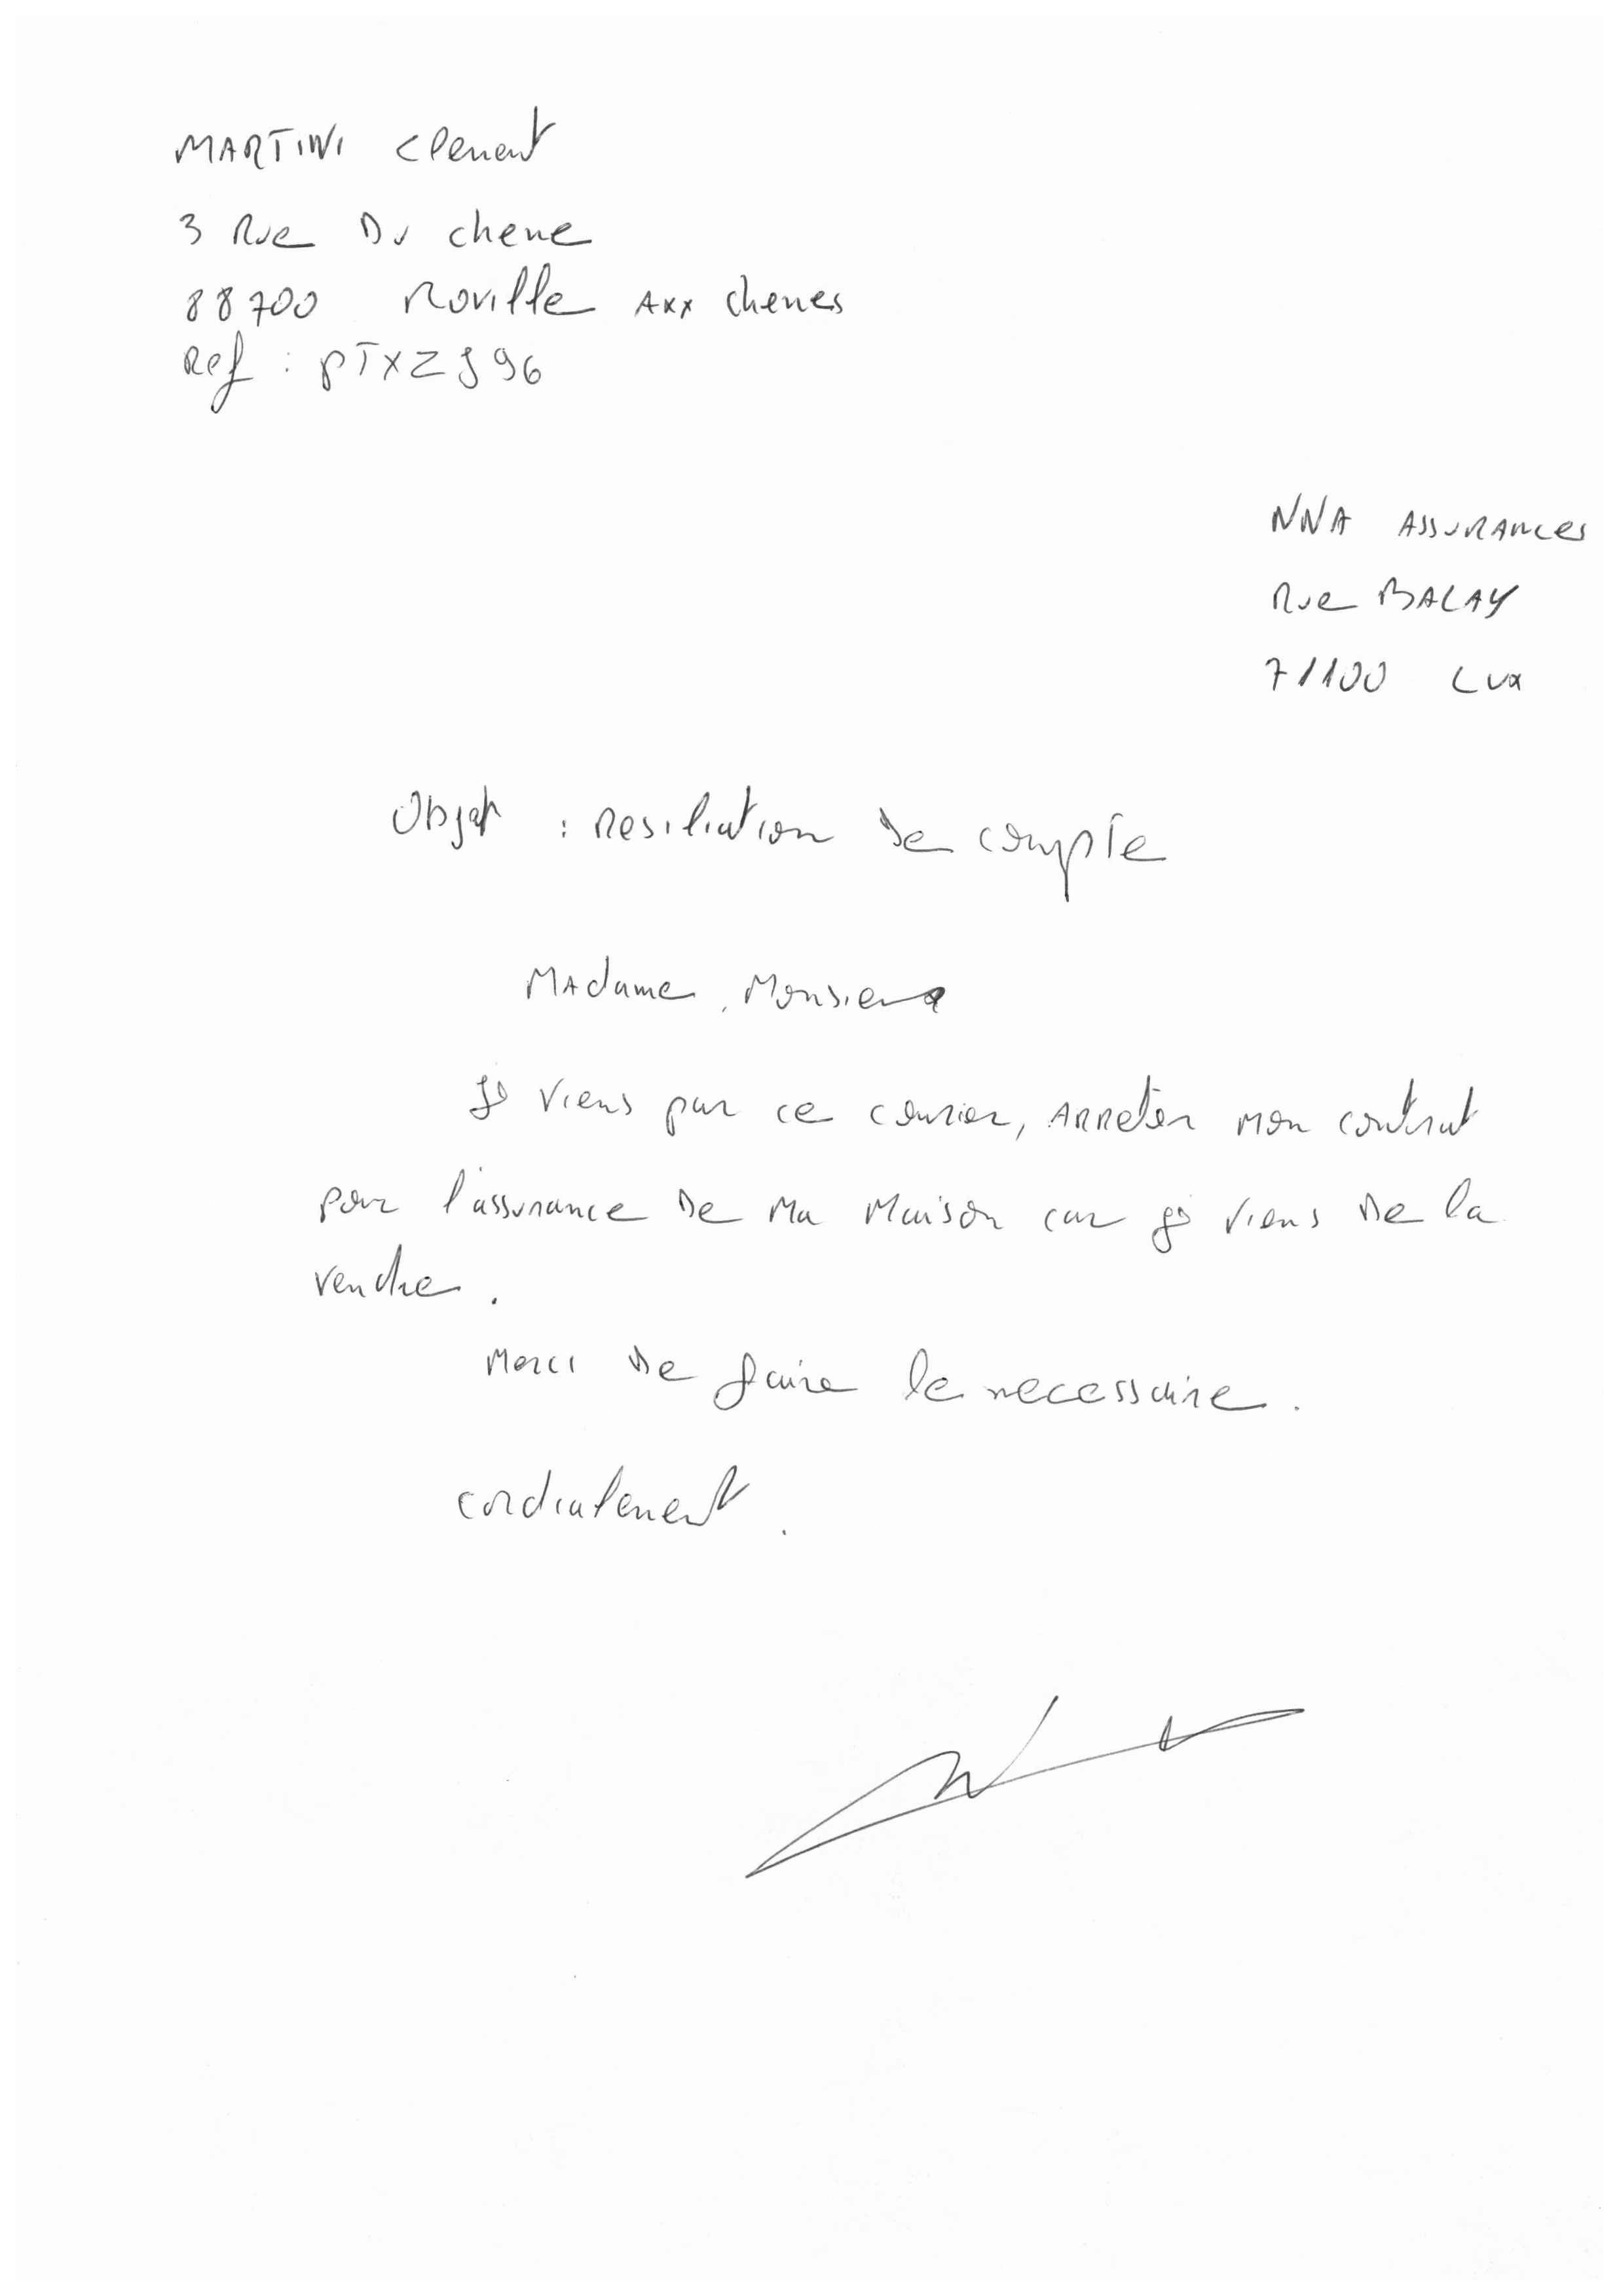 MARTINI Clement
3 Rue Du chene
88700 Roville Aux chenes
Ref : PTXZJ96
NNA Assurances
Rue BALAY
71100 Lux
Objet : Resiliation De compte
Madame, Monsieur
Je viens par ce courier, Arreter mon contrat
pour l'assurance De Ma Maison car je viens De la
vendre.
Merci De faire le necessaire.
cordialement.